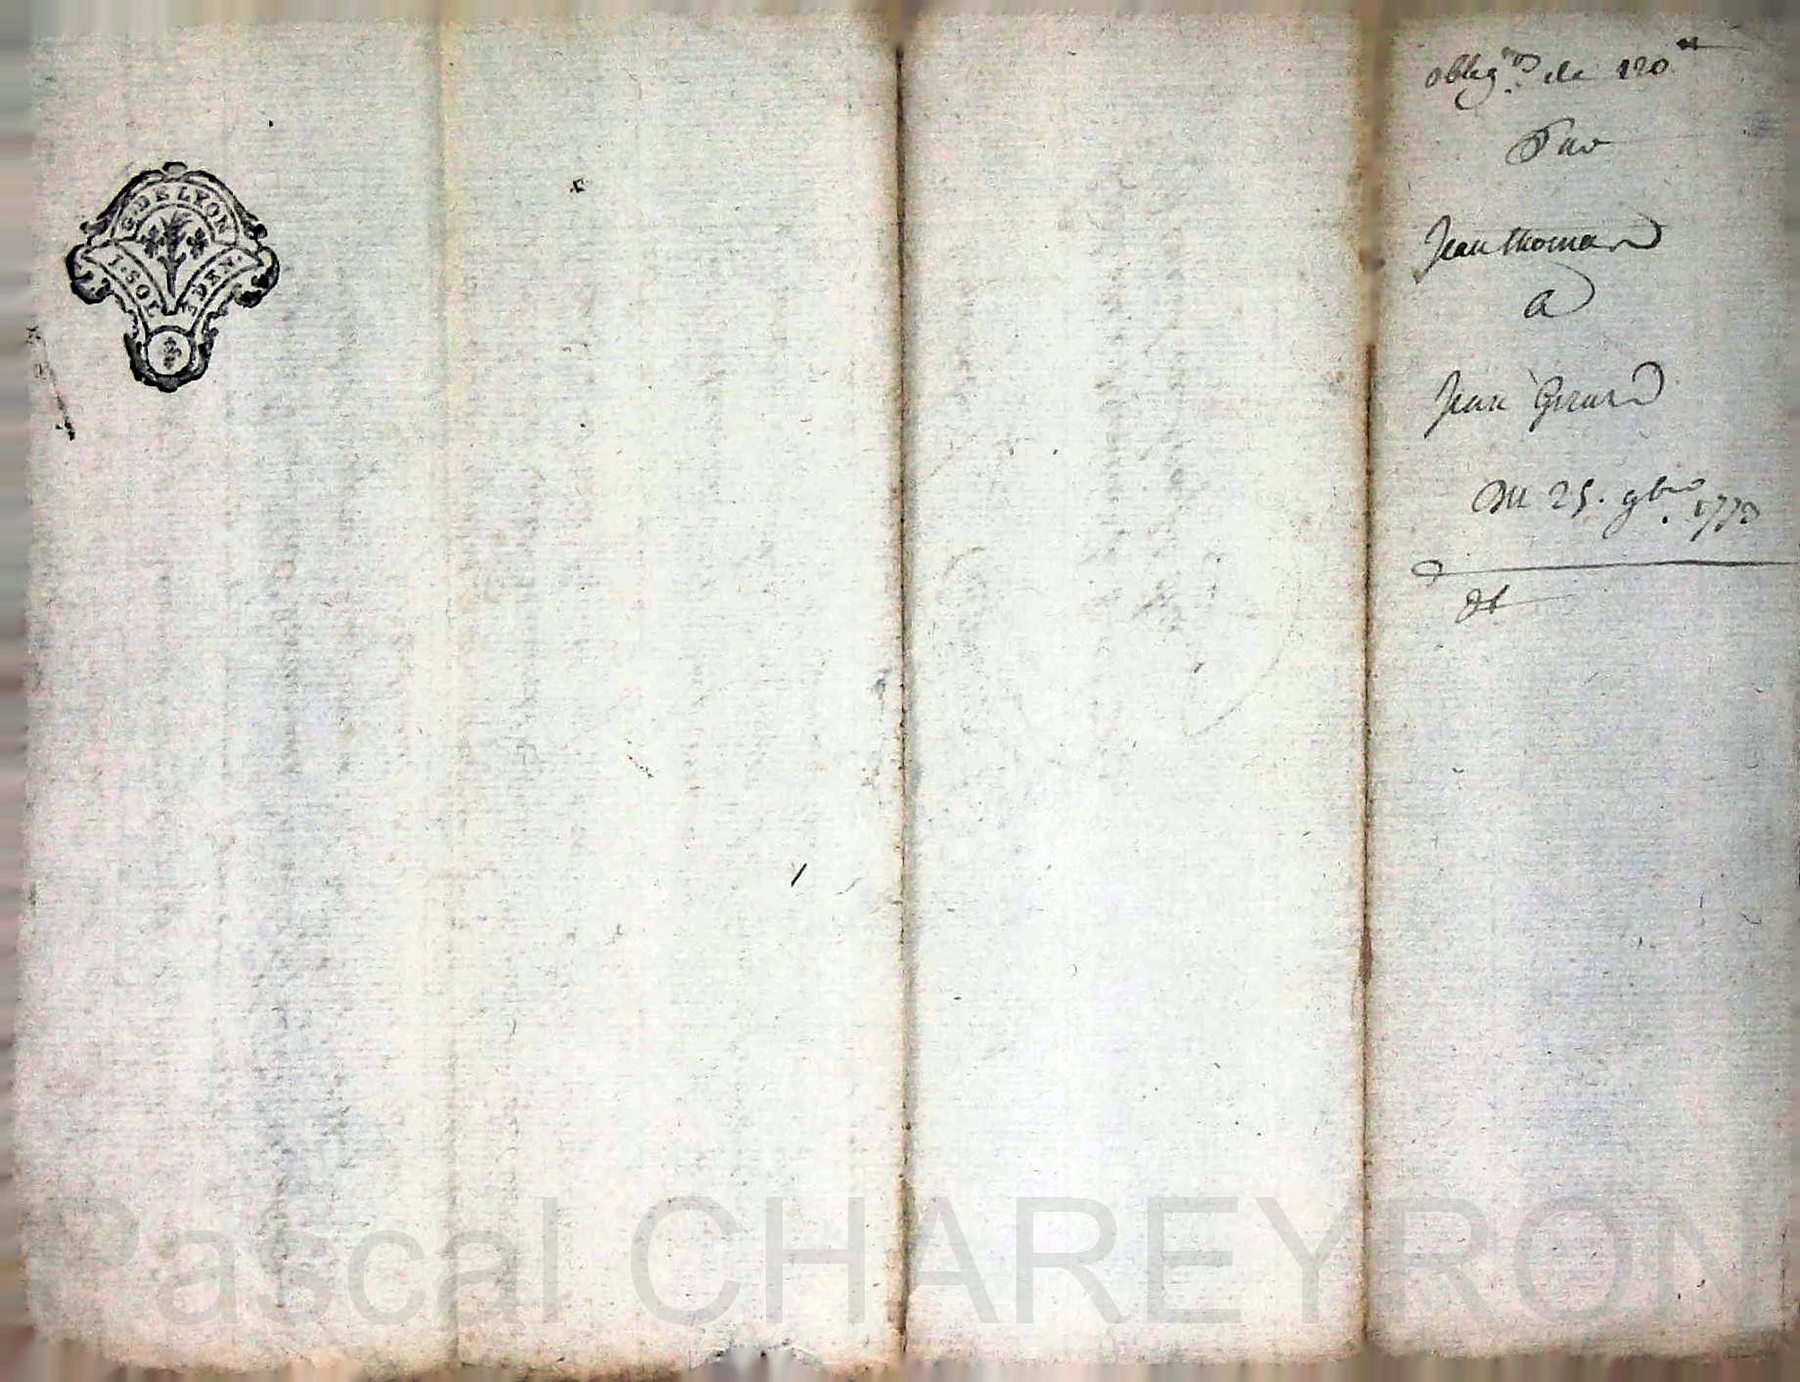 G. DE LYON
1. SOL DEN.
oblig.on de 120 ₶
Par
Jean thomas
a
Jean Girard
Du 25. 9bre 1773
Pascal CHAREYRON